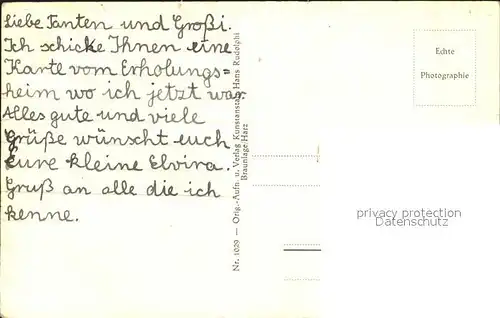 Liebe Tanten und Großi.
Ich schicke Ihnen eine
Karte vom Erholungs=
heim wo ich jetzt war
Alles gute und viele
Grüße wünscht euch
Eure kleine Elvira.
Gruß an alle die ich
kenne.
Nr. 1089 — Orig.-Aufn. u. Verlag Kunstanstalt Hans Rudolphi
Braunlage-Harz
Echte
Photographie
privacy protection
Datenschutz